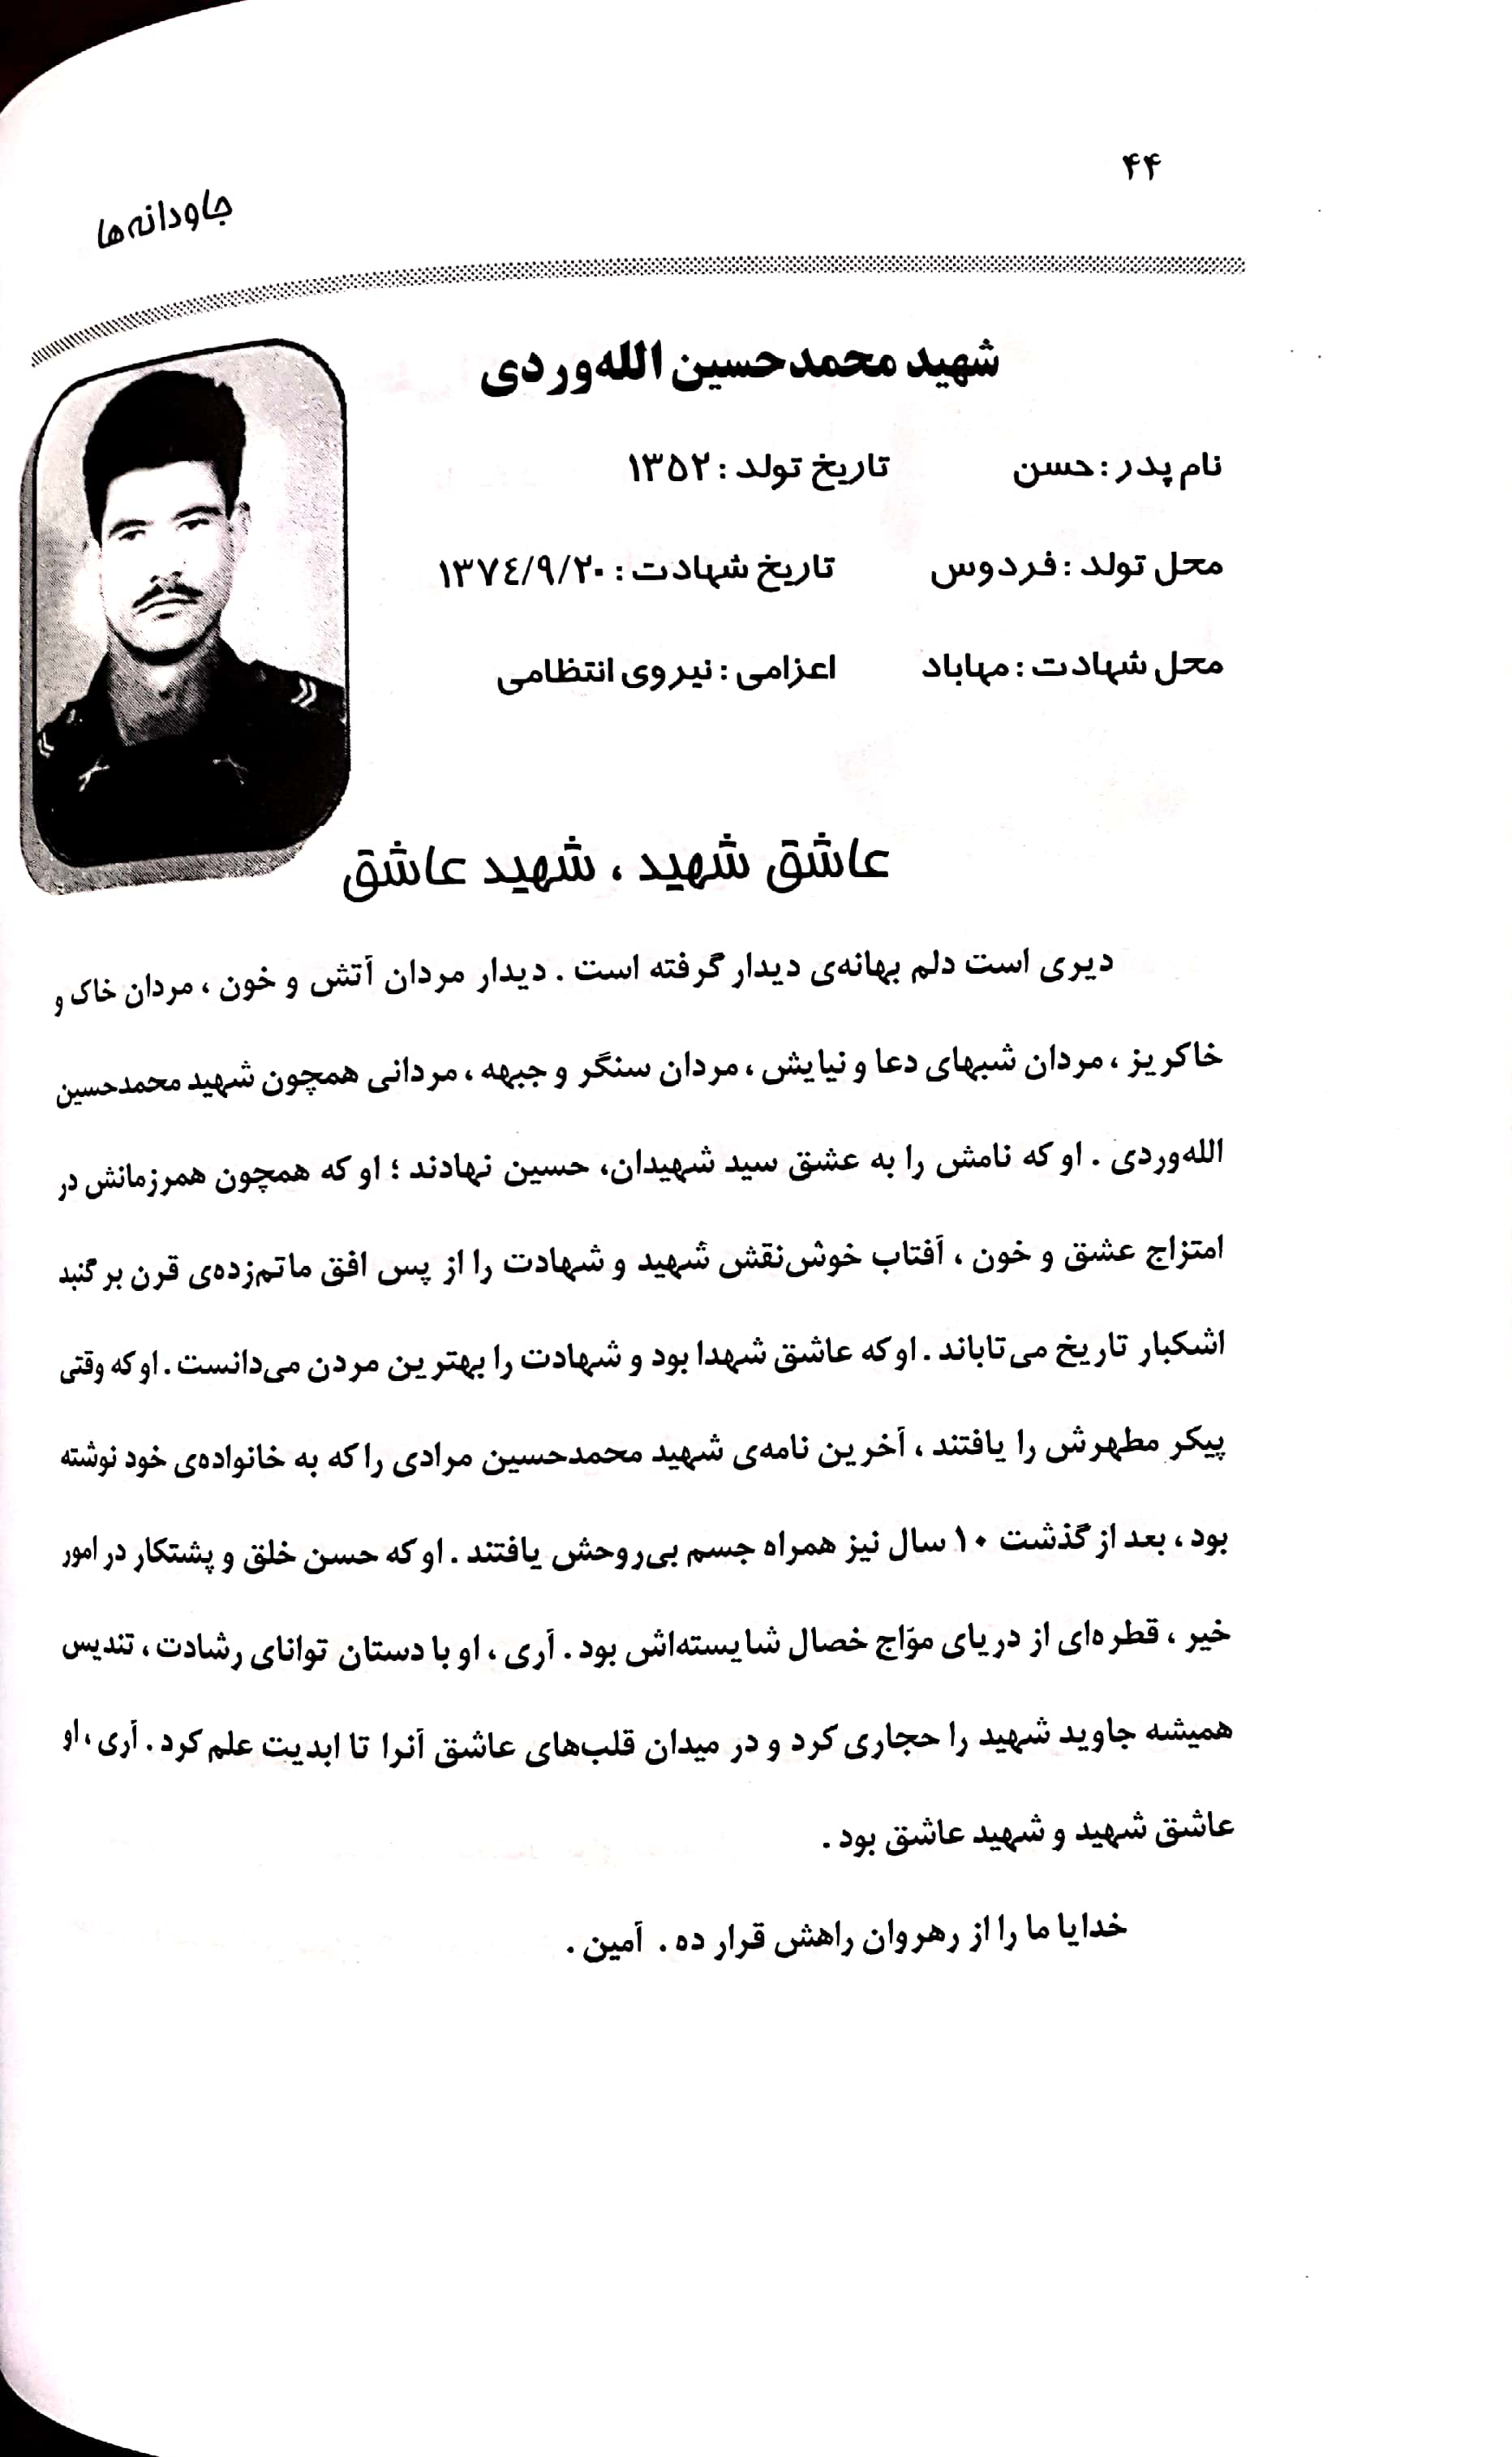 ۴۴
جاودانه‌ها
شهید محمدحسین الله‌وردی
نام پدر : حسن تاریخ تولد : ۱۳۵۲
محل تولد : فردوس تاریخ شهادت : ۱۳۷٤/۹/۲۰
محل شهادت : مهاباد اعزامی : نیروی انتظامی
عاشق شهید ، شهید عاشق
دیری است دلم بهانه‌ی دیدار گرفته است . دیدار مردان آتش و خون ، مردان خاک و
خاکریز ، مردان شبهای دعا و نیایش ، مردان سنگر و جبهه ، مردانی همچون شهید محمدحسین
الله‌وردی . او که نامش را به عشق سید شهیدان، حسین نهادند ؛ او که همچون همرزمانش در
امتزاج عشق و خون ، آفتاب خوش‌نقش شهید و شهادت را از پس افق ماتم‌زده‌ی قرن بر گنبد
اشکبار تاریخ می‌تاباند . او که عاشق شهدا بود و شهادت را بهترین مردن می‌دانست . او که وقتی
پیکر مطهرش را یافتند ، آخرین نامه‌ی شهید محمدحسین مرادی را که به خانواده‌ی خود نوشته
بود ، بعد از گذشت ۱۰ سال نیز همراه جسم بی‌روحش یافتند . او که حسن خلق و پشتکار در امور
خیر ، قطره‌ای از دریای موّاج خصال شایسته‌اش بود . آری ، او با دستان توانای رشادت ، تندیس
همیشه جاوید شهید را حجاری کرد و در میدان قلب‌های عاشق آنرا تا ابدیت علم کرد . آری ، او
عاشق شهید و شهید عاشق بود .
خدایا ما را از رهروان راهش قرار ده . آمین .